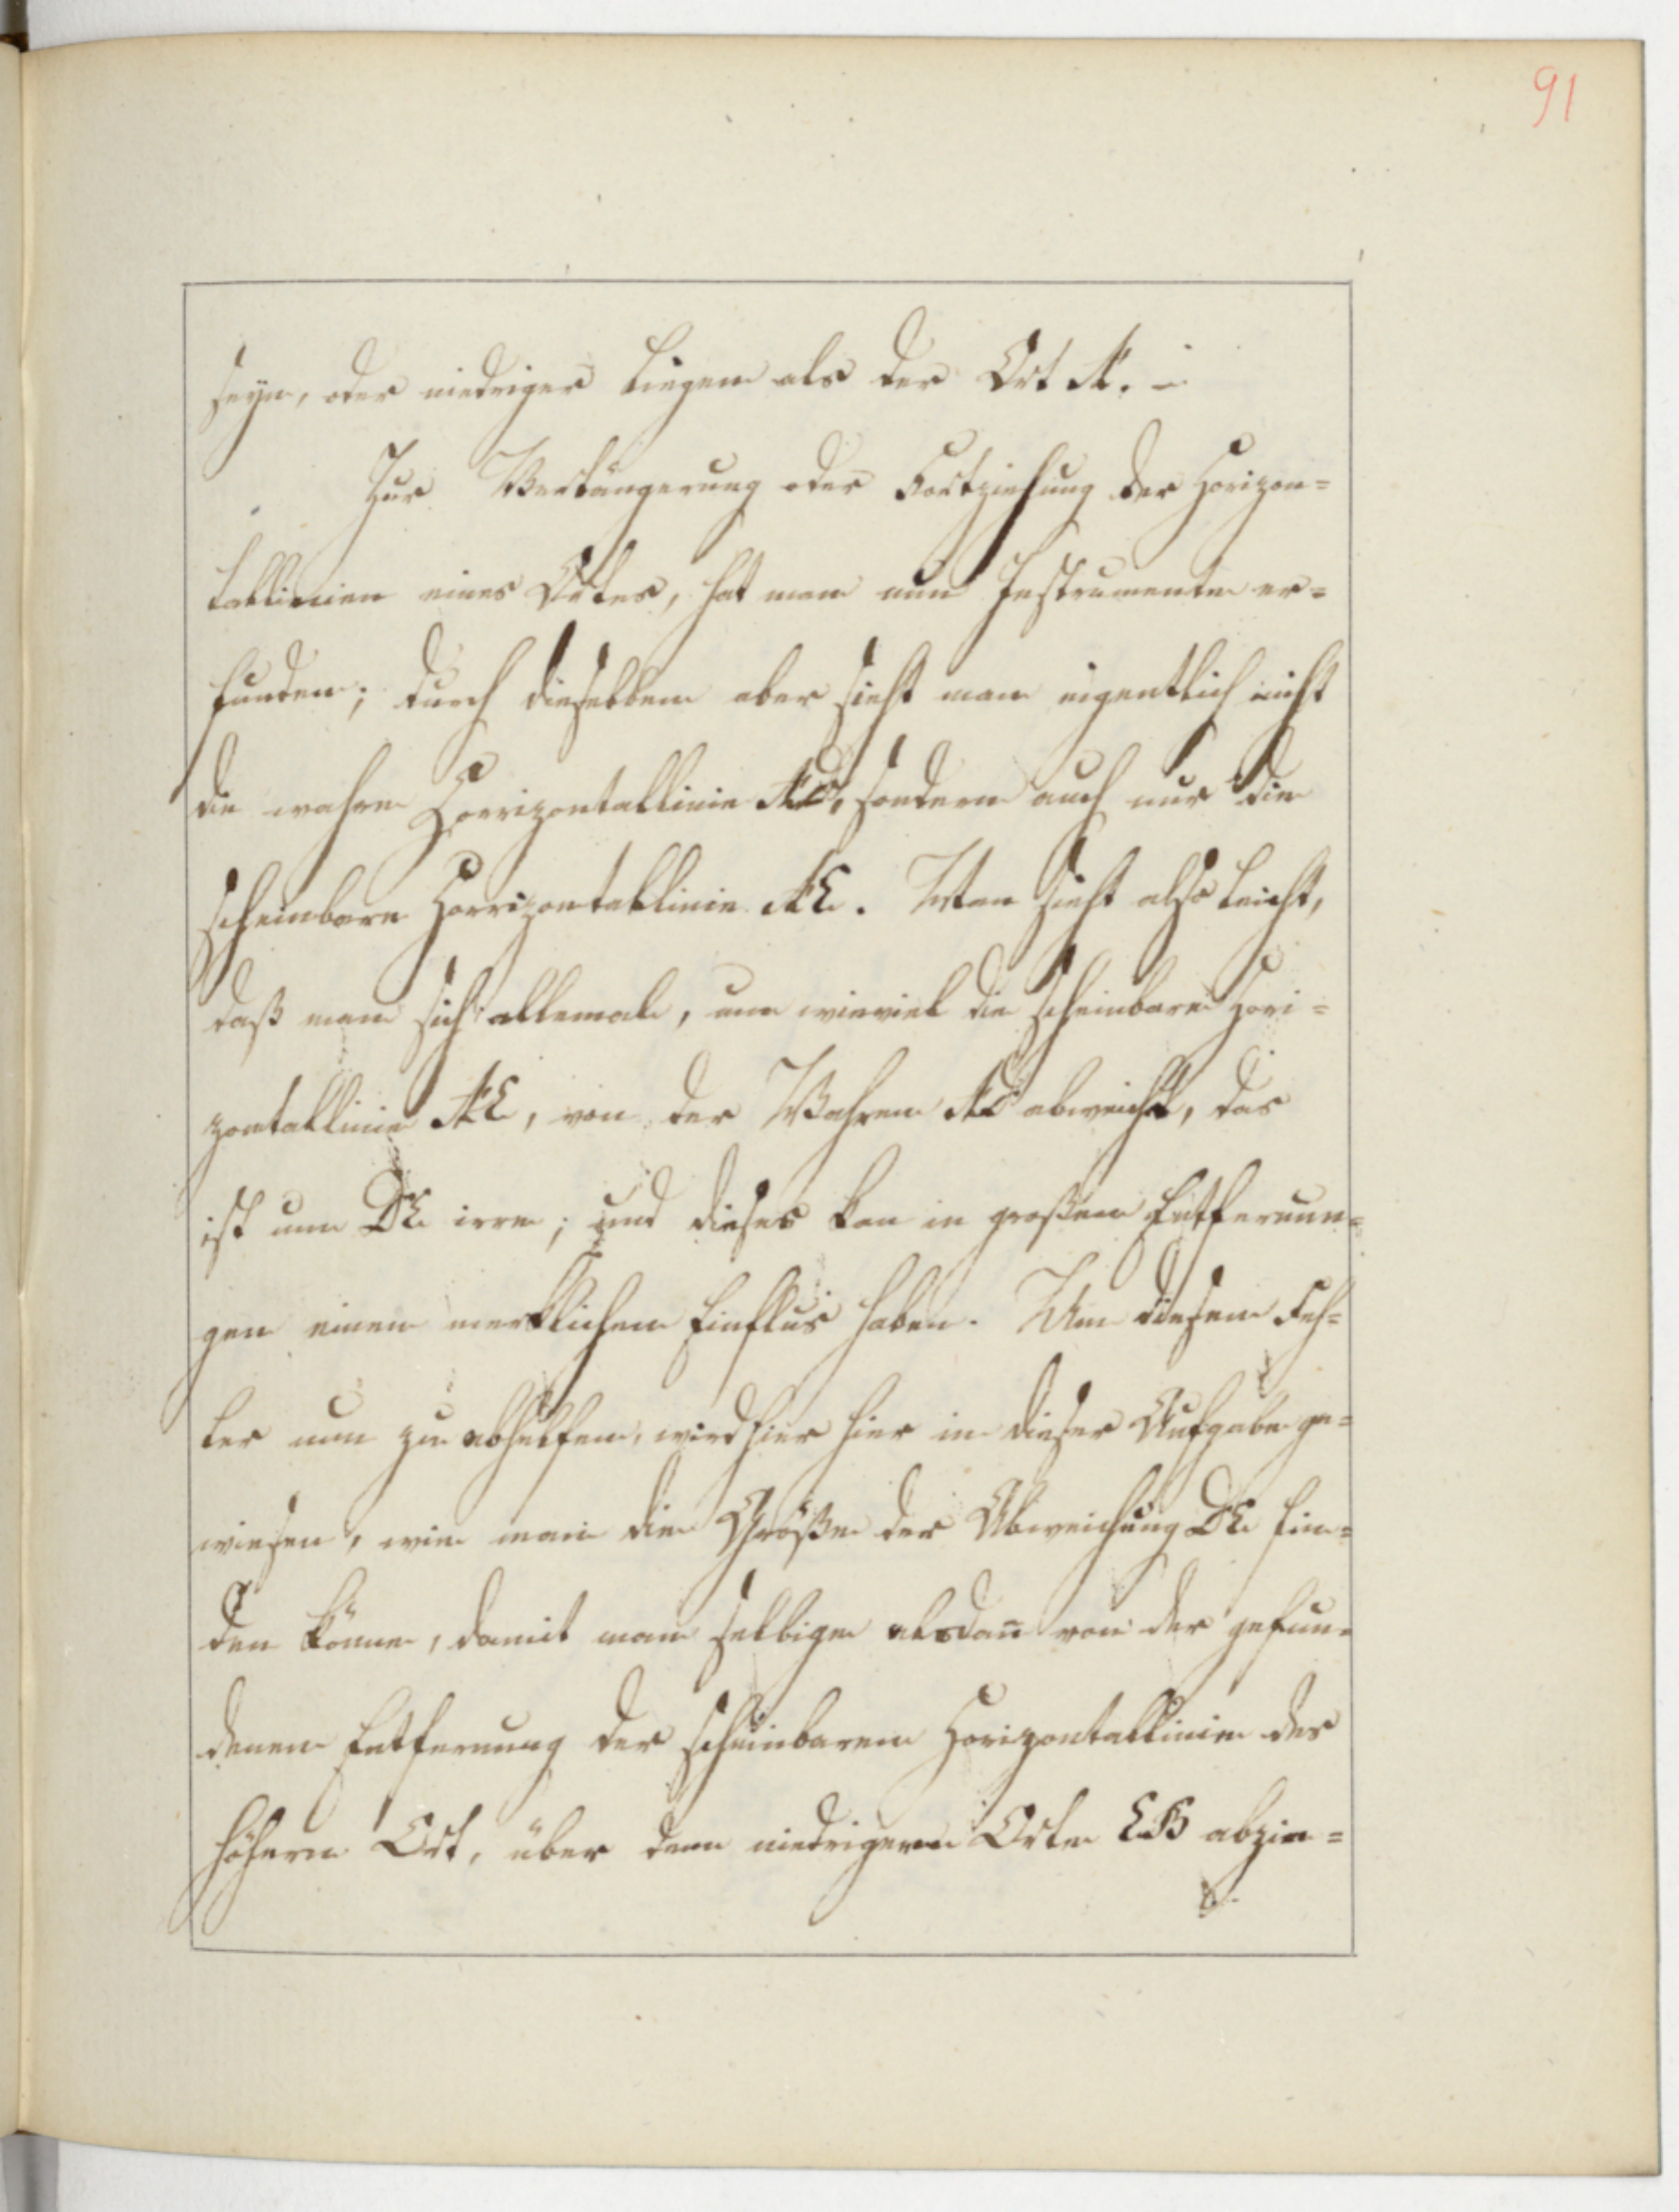 91
seyn, oder niedriger liegen als der Ort A. –
Zur Verlängerung oder Fortziehung der Horizon=
tallinien eines Ortes, hat man nun Instrumente er=
funden; durch dieselben aber sieht man eigentlich nicht
die wahre Horrizontallinie AD, sondern auch nur die
scheinbare Horrizontallinie AE. Man sieht also leicht,
daß man sich allemal, um wieviel die scheinbare Hori=
zontallinie AE, von der Wahren AD abweicht, das
ist um DE irre; und dieses kan in großen Entfernun=
gen einen merklichen Einflus haben. Um diesem Feh=
ler nun zu abhelfen, wird hier hier in dieser Aufgabe ge=
wiesen, wie man die Größe der Abweichung DE fin=
den könne, damit man selbige alsdañ von der gefun=
denen Entfernung der scheinbaren Horizontallinie des
höhern Ort, über dem niedrigern Orte EB abzie=